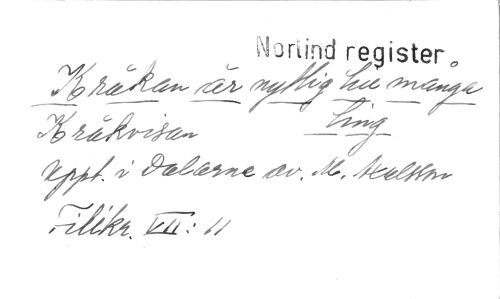 Norlind register
Kråkan är nyttig till många
ting
Kråkvisan
Uppt. i Dalarne av. M. Axelson
Filikr. VII: 11